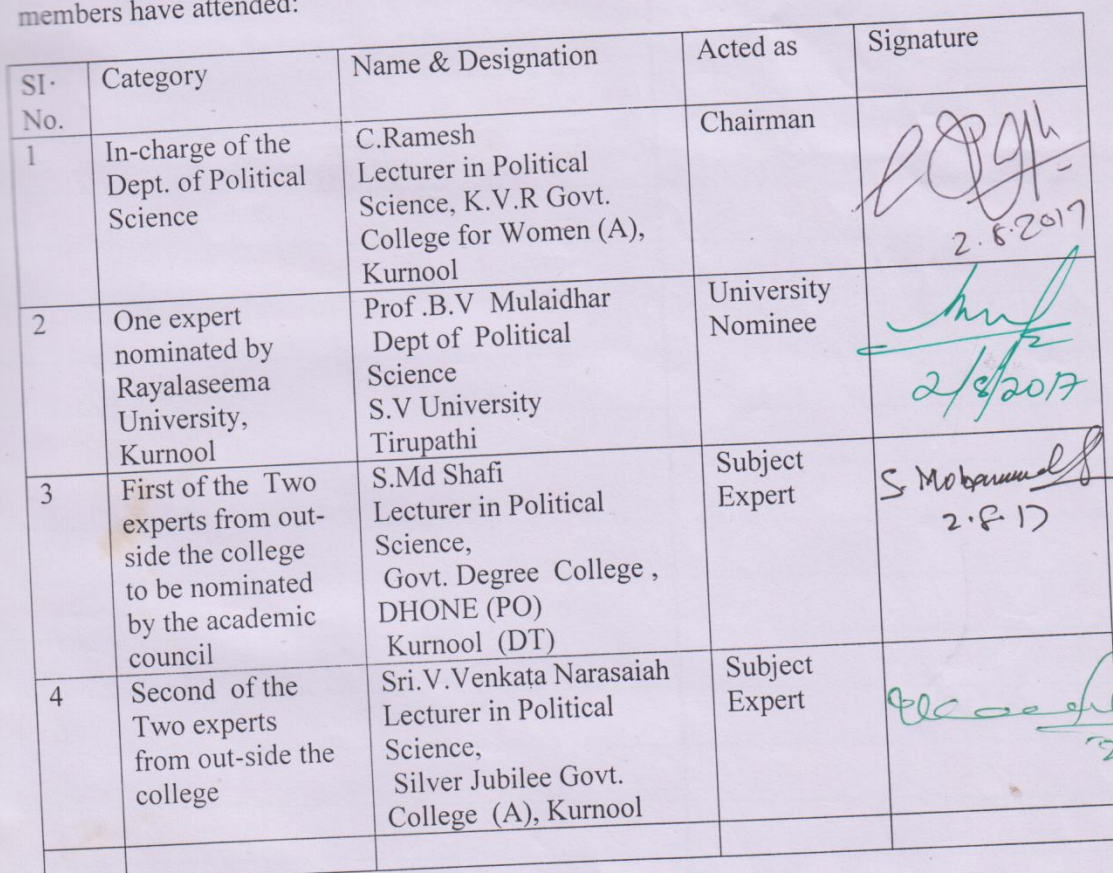 members have attended:
SI·
No.
Category
Name & Designation
Acted as
Signature
1
In-charge of the
Dept. of Political
Science
C.Ramesh
Lecturer in Political
Science, K.V.R Govt.
College for Women (A),
Kurnool
Chairman
2.8.2017
2
One expert
nominated by
Rayalaseema
University,
Kurnool
Prof .B.V Mulaidhar
Dept of Political
Science
S.V University
Tirupathi
University
Nominee
2/8/2017
3
First of the Two
experts from out-
side the college
to be nominated
by the academic
council
S.Md Shafi
Lecturer in Political
Science,
Govt. Degree College ,
DHONE (PO)
Kurnool (DT)
Subject
Expert
2.8.17
4
Second of the
Two experts
from out-side the
college
Sri.V.Venkata Narasaiah
Lecturer in Political
Science,
Silver Jubilee Govt.
College (A), Kurnool
Subject
Expert